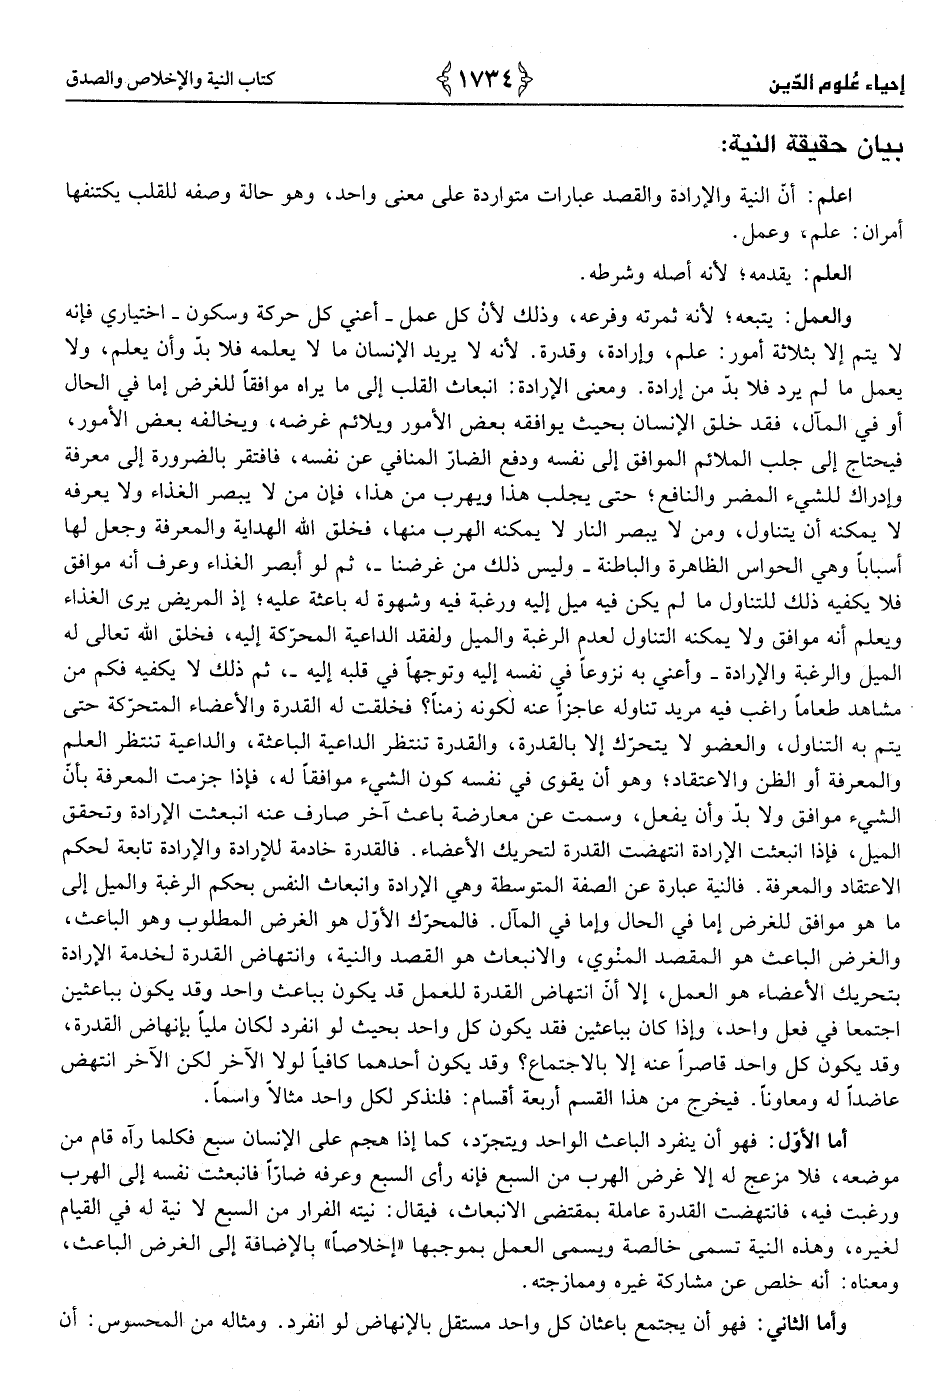 إحياء عُلوم الدّين ﴿١٧٣٤﴾ كتاب النية والإخلاص والصدق
بيان حقيقة النية:
اعلم: أنّ النية والإرادة والقصد عبارات متواردة على معنى واحد، وهو حالة وصفه للقلب يكتنفها
أمران: علم، وعمل.
العلم: يقدمه؛ لأنه أصله وشرطه.
والعمل: يتبعه؛ لأنه ثمرته وفرعه، وذلك لأنْ كل عمل ـ أعني كل حركة وسكون ـ اختياري فإنه
لا يتم إلا بثلاثة أمور: علم، وإرادة، وقدرة. لأنه لا يريد الإنسان ما لا يعلمه فلا بدّ وأن يعلم، ولا
يعمل ما لم يرد فلا بدّ من إرادة. ومعنى الإرادة: انبعاث القلب إلى ما يراه موافقاً للغرض إما في الحال
أو في المآل، فقد خلق الإنسان بحيث يوافقه بعض الأمور ويلائم غرضه، ويخالفه بعض الأمور،
فيحتاج إلى جلب الملائم الموافق إلى نفسه ودفع الضارّ المنافي عن نفسه، فافتقر بالضرورة إلى معرفة
وإدراك للشيء المضر والنافع؛ حتى يجلب هذا ويهرب من هذا، فإن من لا يبصر الغذاء ولا يعرفه
لا يمكنه أن يتناول، ومن لا يبصر النار لا يمكنه الهرب منها، فخلق الله الهداية والمعرفة وجعل لها
أسباباً وهي الحواس الظاهرة والباطنة ـ وليس ذلك من غرضنا ـ، ثم لو أبصر الغذاء وعرف أنه موافق
فلا يكفيه ذلك للتناول ما لم يكن فيه ميل إليه ورغبة فيه وشهوة له باعثة عليه؛ إذ المريض يرى الغذاء
ويعلم أنه موافق ولا يمكنه التناول لعدم الرغبة والميل ولفقد الداعية المحرّكة إليه، فخلق الله تعالى له
الميل والرغبة والإرادة ـ وأعني به نزوعاً في نفسه إليه وتوجهاً في قلبه إليه ـ، ثم ذلك لا يكفيه فكم من
مشاهد طعاماً راغب فيه مريد تناوله عاجزاً عنه لكونه زمناً؟ فخلقت له القدرة والأعضاء المتحرّكة حتى
يتم به التناول، والعضو لا يتحرّك إلا بالقدرة، والقدرة تنتظر الداعية الباعثة، والداعية تنتظر العلم
والمعرفة أو الظن والاعتقاد؛ وهو أن يقوى في نفسه كون الشيء موافقاً له، فإذا جزمت المعرفة بأنّ
الشيء موافق ولا بدّ وأن يفعل، وسمت عن معارضة باعث آخر صارف عنه انبعثت الإرادة وتحقق
الميل، فإذا انبعثت الإرادة انتهضت القدرة لتحريك الأعضاء. فالقدرة خادمة للإرادة والإرادة تابعة لحكم
الاعتقاد والمعرفة. فالنية عبارة عن الصفة المتوسطة وهي الإرادة وانبعاث النفس بحكم الرغبة والميل إلى
ما هو موافق للغرض إما في الحال وإما في المآل. فالمحرّك الأوّل هو الغرض المطلوب وهو الباعث،
والغرض الباعث هو المقصد المنْوي، والانبعاث هو القصد والنية، وانتهاض القدرة لخدمة الإرادة
بتحريك الأعضاء هو العمل، إلا أنّ انتهاض القدرة للعمل قد يكون بباعث واحد وقد يكون بباعثين
اجتمعا في فعل واحد، وإذا كان بباعثين فقد يكون كل واحد بحيث لو انفرد لكان ملياً بإنهاض القدرة،
وقد يكون كل واحد قاصراً عنه إلا بالاجتماع؟ وقد يكون أحدهما كافياً لولا الآخر لكن الآخر انتهض
عاضداً له ومعاوناً. فيخرج من هذا القسم أربعة أقسام: فلنذكر لكل واحد مثالاً واسماً.
أما الأوّل: فهو أن ينفرد الباعث الواحد ويتجرّد، كما إذا هجم على الإنسان سبع فكلما رآه قام من
موضعه، فلا مزعج له إلا غرض الهرب من السبع فإنه رأى السبع وعرفه ضارّاً فانبعثت نفسه إلى الهرب
ورغبت فيه، فانتهضت القدرة عاملة بمقتضى الانبعاث، فيقال: نيته الفرار من السبع لا نية له في القيام
لغيره، وهذه النية تسمى خالصة ويسمى العمل بموجبها «إخلاصاً» بالإضافة إلى الغرض الباعث،
ومعناه: أنه خلص عن مشاركة غيره وممازجته.
وأما الثاني: فهو أن يجتمع باعثان كل واحد مستقل بالإنهاض لو انفرد. ومثاله من المحسوس: أن